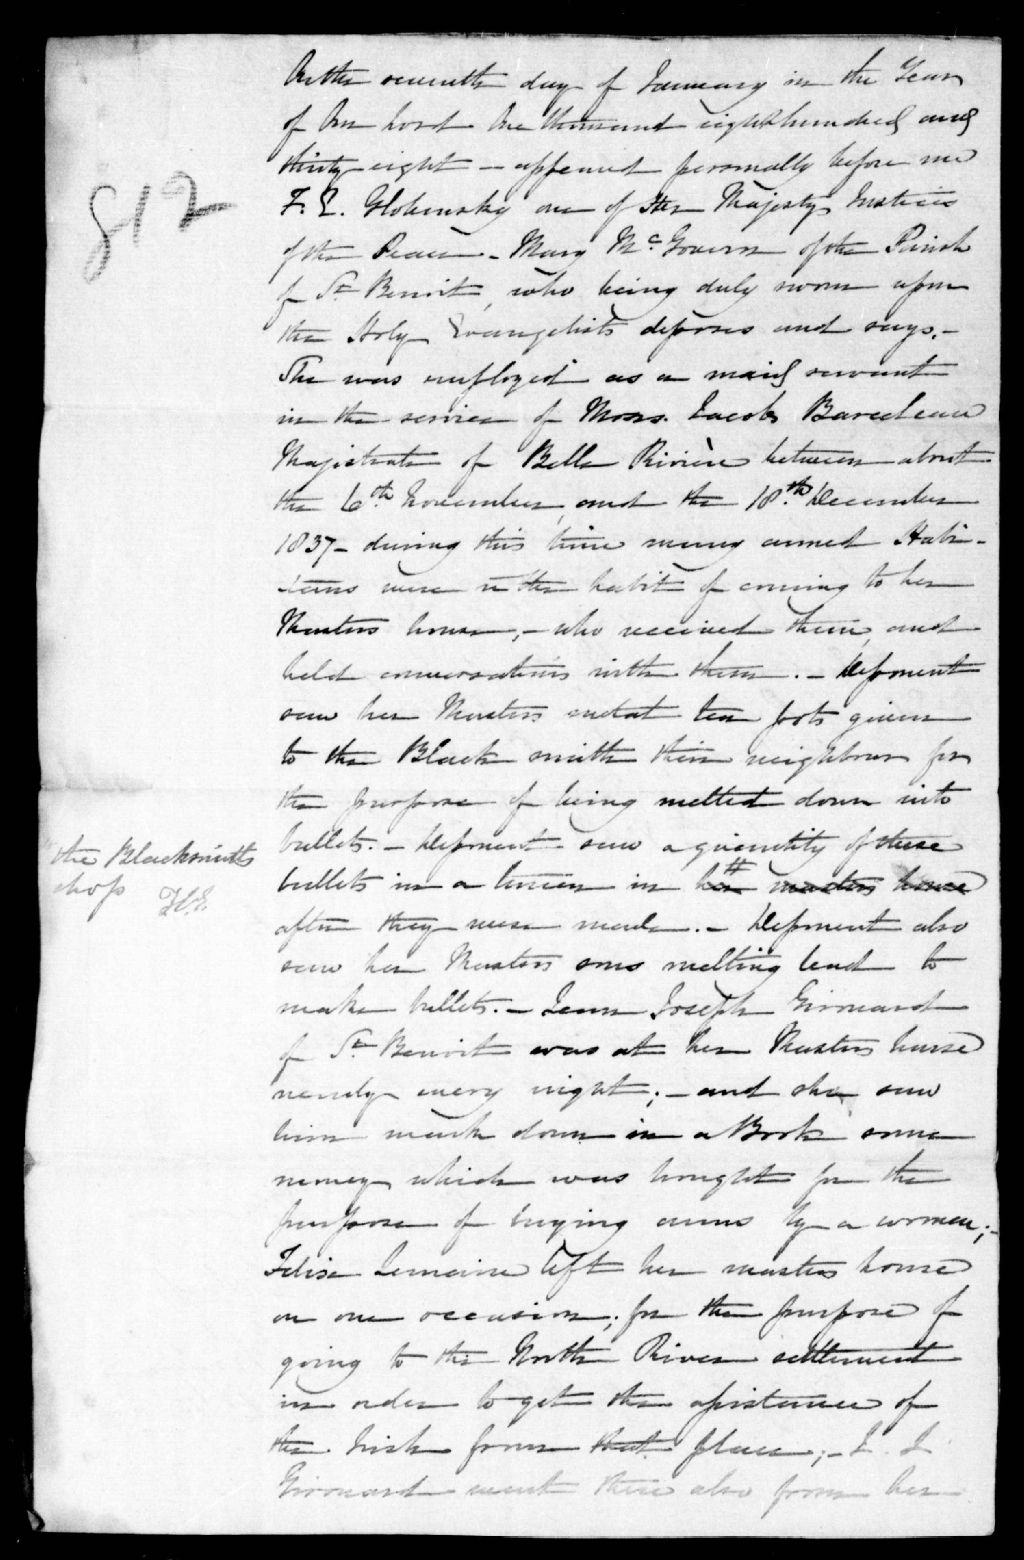 812
On the seventh day of January in the Year
of Our Lord One thousand eight hundred and
thirty-eight – appeared personally before me
F. E. Globensky one of Her Majestys Justices
of the Peace – Mary Mc Govern of the Parish
of St Benoit, who being duly sworn upon
the Holy Evangelists deposes and says. –
She was employed as a maid servant
in the service of Jacob Barcelow
Magistrate of Belle Rivière between about
the 6th November, and the 18th December
1837 – during this time many armed Habi-
tans were in the habit of coming to her
Masters house, – who received them, and
held conversations with them. – Deponent
saw her Masters metal tea pots given
to the Black smith their neighbour for
the purpose of being melted down into
bullets. – Deponent saw a quantity of these
the Blacksmith's
shop
bullets in a in her masters house
after they were made. – Deponent also
saw her Masters sons melting lead to
make bullets. – Jean Joseph Girouard
of St Benoit was at her Masters house
nearly every night; – and she saw
him mark down in a Book some
money which was brought for the
purpose of buying arms by a woman; –
Felise Lemaire left her masters house
on one occasion, for the purpose of
going to the North River settlement
in order to get the assistance of
the Irish from that place; – J. J.
Girouard went there also from her